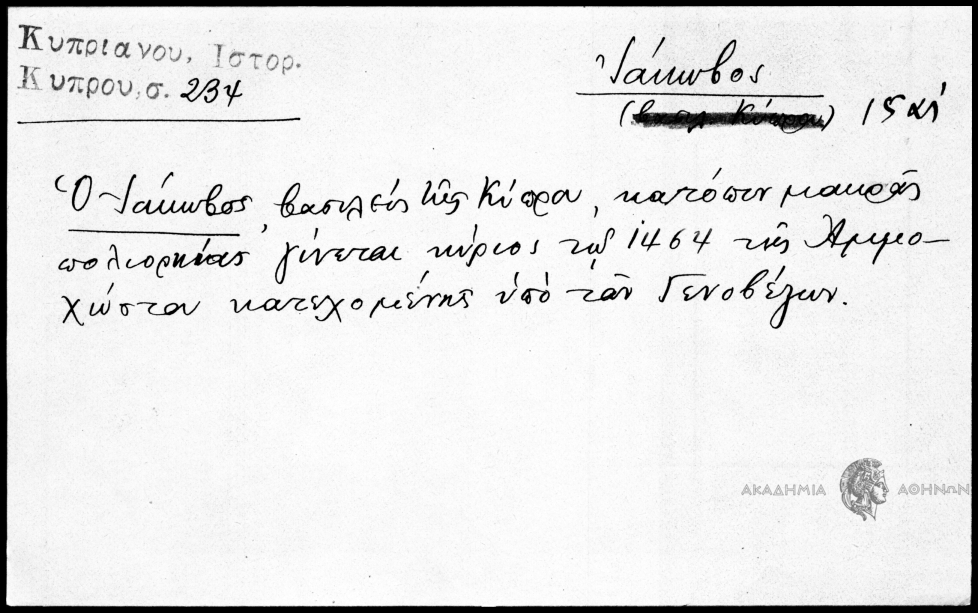 Κυπριανου, Ιστορ.
Κυπρου, σ. 234
Ἰάκωβος
(βασιλ. Κύπρου) 15 αἰ
Ὁ Ἰάκωβος, βασιλεύς τῆς Κύπρου, κατόπιν μακρᾶς
πολιορκίας γίνεται κύριος τῷ 1464 τῆς Ἀμμο-
χώστου κατεχομένης ὑπό τῶν Γενοβέζων.
ΑΚΑΔΗΜΙΑ ΑΘΗΝΩΝ